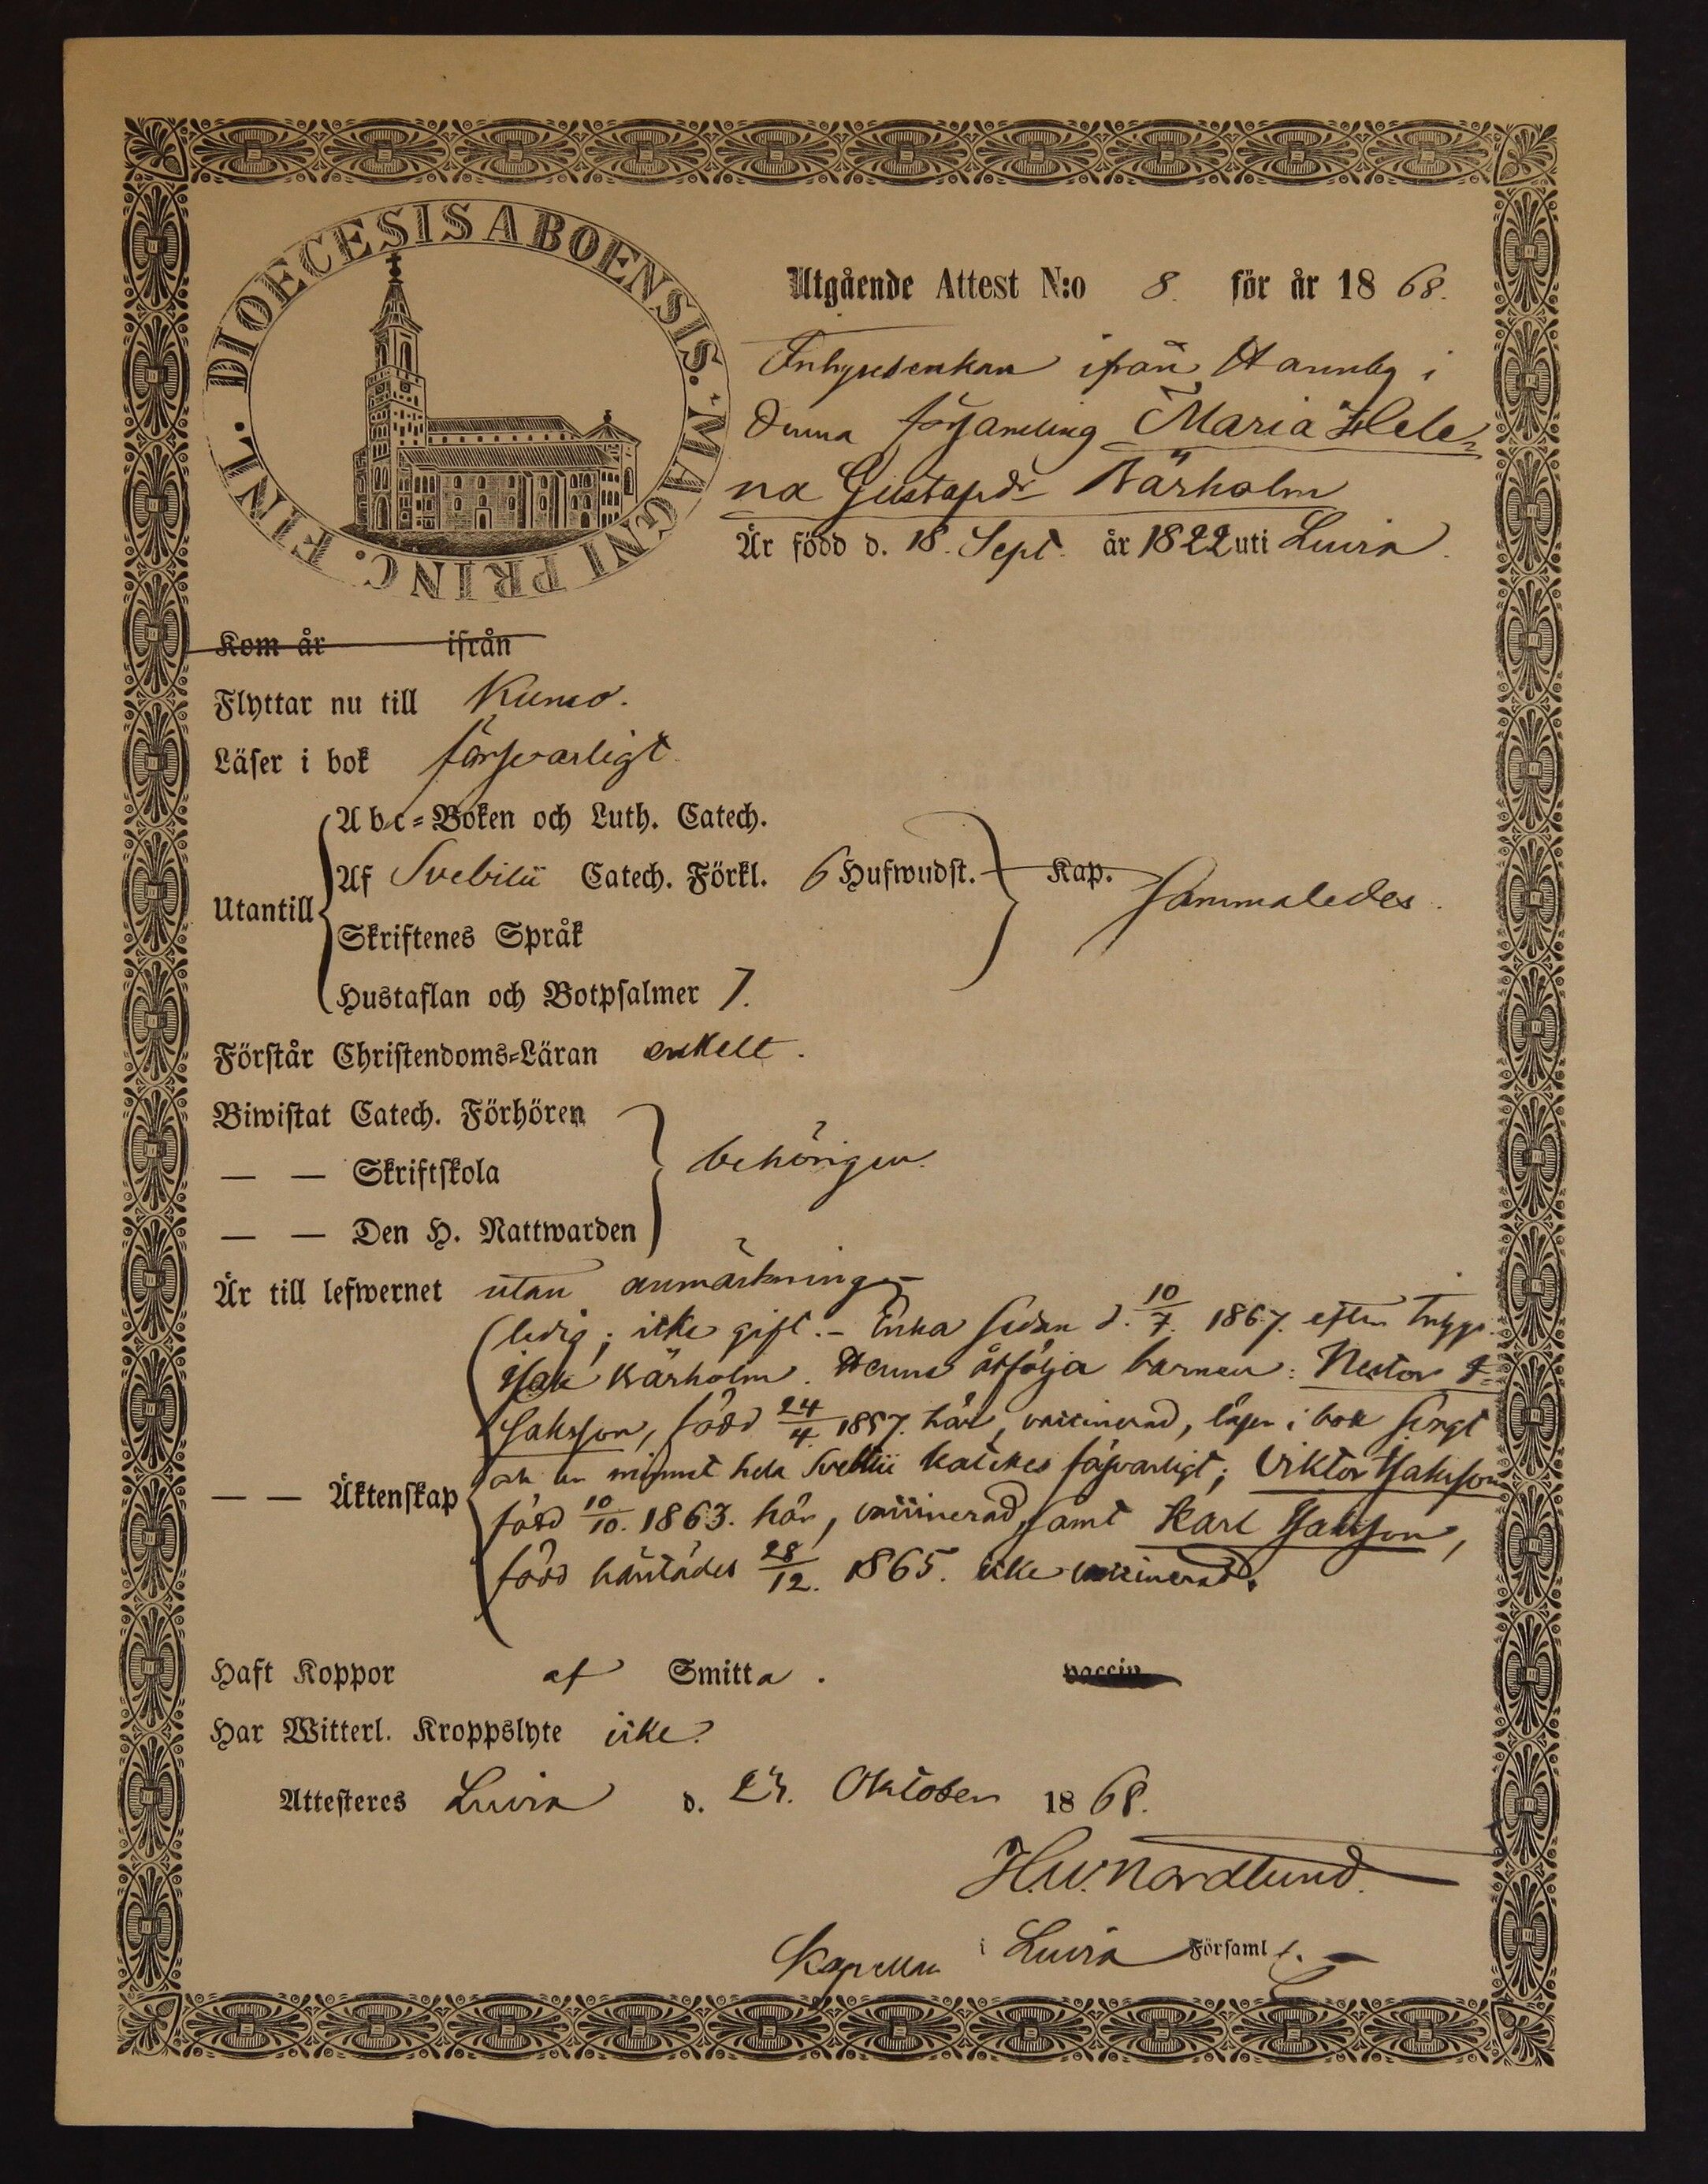 DIOECESIS ABOENSIS. MAGNI PRINC. FINL.
Utgående Attest N:o 8. för år 1868.
Inhysesenkan ifrån Hannby i
denna församling Maria Hele-
na Gustafsdr Wärholm
Är född d. 18. Sept. år 1822 uti Luvia.
Kom år ifrån
Flyttar nu till Kumo.
Läser i bok försvarligt.
Utantill
Abc-Boken och Luth. Catech.
Af Svebilii Catech. Förkl. 6 Hufwudst. Kap. sammaledes.
Skriftenes Språk
Hustaflan och Botpsalmer 7.
Förstår Christendoms-Läran enkelt.
Biwistat Catech. Förhören
— — Skriftskola behörigen.
— — Den H. Nattwarden
Är till lefwernet utan anmärkning.
ledig; icke gift. - Enka sedan d. 10/7. 1867. efter Inhyse.
Isak Wärholm. Henne åtfölja barnen: Nestor I-
saksson, född 24/4. 1857. här, vaccinerad, läser i bok
— — Äktenskap
och ur minnet hela Svebilii katekes försvarligt; Viktor Isaksson
född 10/10. 1863. här, vaccinerad, samt Karl Isaksson,
född härstädes 28/12. 1865. icke vaccinerad.
Haft Koppor af Smitta. vaccin
Har Witterl. Kroppslyte icke.
Attesteres Luvia d. 23. Oktober 1868.
H.W. Nordlund.
Kapellan i Luvia Församl.